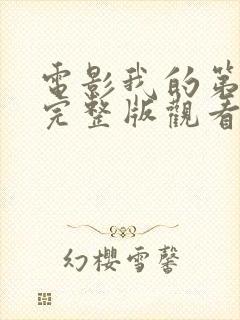 電影我的第
完整版觀看
幻櫻雪馨